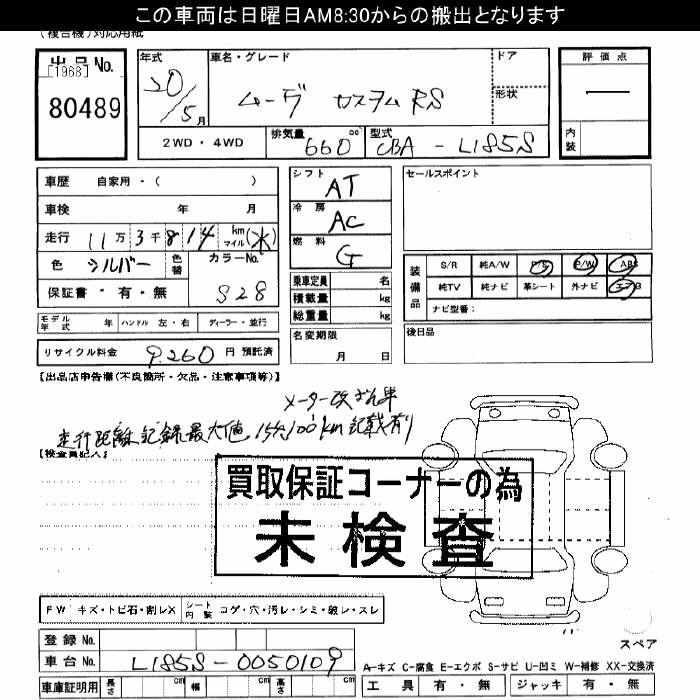 この車両は日曜日AM8:30からの搬出となります
(複合機)対応用紙
出品No.
[1968]
80489
年式
20/5月
車名・グレード
ムーヴ カスタム RS
ドア
形状
評価点
内装
2WD・4WD
排気量
660cc
型式
CBA-L185S
車歴 自家用・( )
車検 年 月
走行 11万3千814 km マイル(*)
色 シルバー 色替 カラーNo. S28
保証書・有・無
シフト AT
冷房 AC
燃料 G
セールスポイント
装備品
S/R 純A/W P/S P/W ABS
純TV 純ナビ 革シート 外ナビ エアB
ナビ型番:
乗車定員 名
積載量 kg
総重量 kg
モデル年式 年 ハンドル 左・右 ディーラー・並行
名変期限
月 日
後日品
リサイクル料金 9.260 円 預託済
【出品店申告欄(不良箇所・欠品・注意事項等)】
メーター改ざん車
走行距離記録最大値 記載有り
【検査員記入】
買取保証コーナーの為
未検査
FW キズ・トビ石・割レX シート内装 コゲ・穴・汚レ・シミ・破レ・スレ
スペア
登録No.
車台No. L185S-0050109
A-キズ C-腐食 E-エクボ S-サビ U-凹ミ W-補修 XX-交換済
車庫証明用 長さ cm 幅 cm 高さ cm
工具 有・無 ジャッキ 有・無